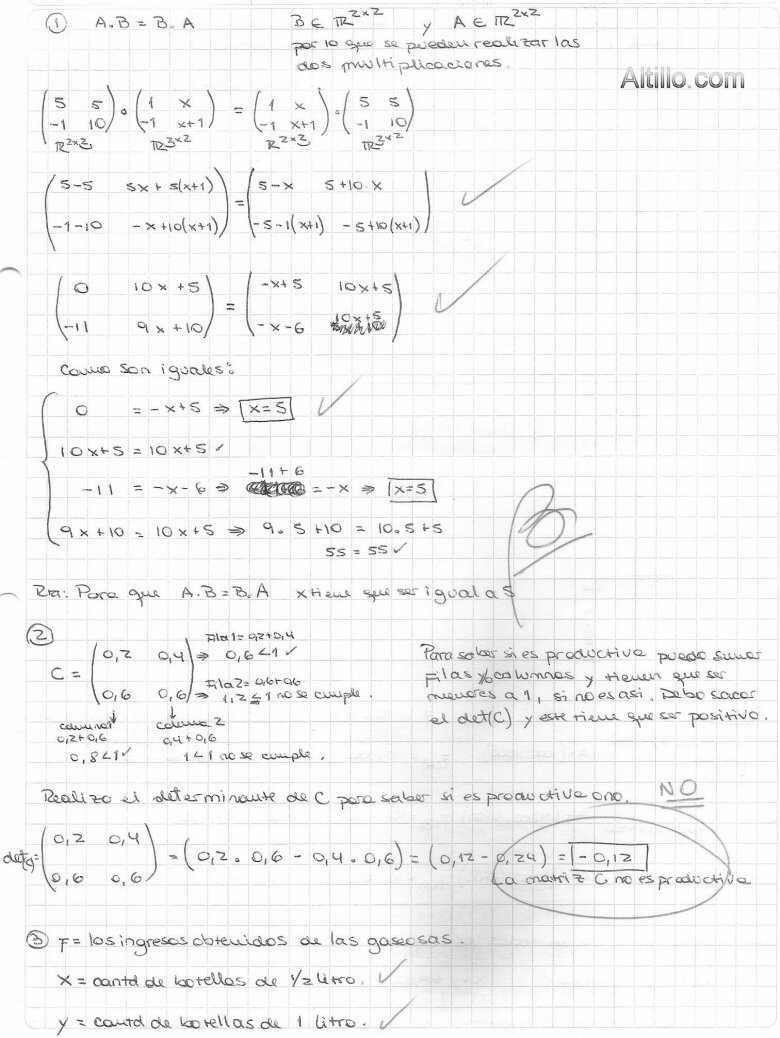 ① A.B = B.A B ∈ ℝ²ˣ² y A ∈ ℝ²ˣ²
por lo que se pueden realizar las
dos multiplicaciones.
Altillo.com
(5 5) · (1 x) = (1 x) · (5 5)
(-1 10) (-1 x+1) (-1 x+1) (-1 10)
ℝ²ˣ² ℝ²ˣ² ℝ²ˣ² ℝ²ˣ²
(5-5 5x+5(x+1)) = (5-x 5+10.x)
(-1-10 -x+10(x+1)) (-5-1(x+1) -5+10(x+1))
(0 10x+5) = (-x+5 10x+5)
(-11 9x+10) (-x-6 10x+5)
Como son iguales:
0 = -x+5 ⇒ x=5
10x+5 = 10x+5 ✓
-11 = -x-6 ⇒ -11+6 = -x ⇒ x=5
9x+10 = 10x+5 ⇒ 9.5+10 = 10.5+5
55 = 55 ✓
B
Rta: Para que A.B=B.A x tiene que ser igual a 5
②
C = (0,2 0,4) ⇒ Fila 1 = 0,2+0,4
0,6<1 ✓
(0,6 0,6) ⇒ Fila 2 = 0,6+0,6
1,2≤1 no se cumple.
columna 1 columna 2
0,2+0,6 0,4+0,6
0,8<1 ✓ 1<1 no se cumple.
Para saber si es productiva puedo sumar
filas y/o columnas y tienen que ser
menores a 1, si no es asi. Debo sacar
el det(C) y este tiene que ser positivo.
Realizo el determinante de C para saber si es productiva o no. NO
(0,2 0,4) = (0,2 . 0,6 - 0,4 . 0,6) = (0,12 - 0,24) = -0,12
(0,6 0,6)
La matriz C no es productiva
③ F = los ingresos obtenidos de las gaseosas.
x = cantd de botellas de 1/2 litro.
y = cantd de botellas de 1 litro.